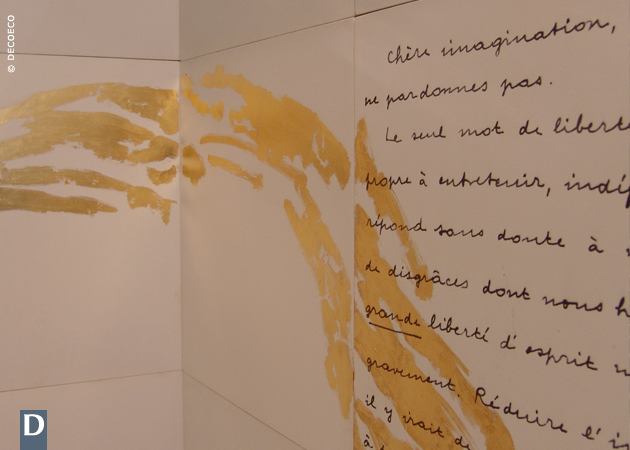 © DECOECO
Chère imagination,
ne pardonnes pas.
Le seul mot de liberté
propre à entretenir, indéf
répond sans doute à
de disgrâces dont nous h
grande liberté d'esprit n
gravement. Réduire l'i
il y irait de
à
D